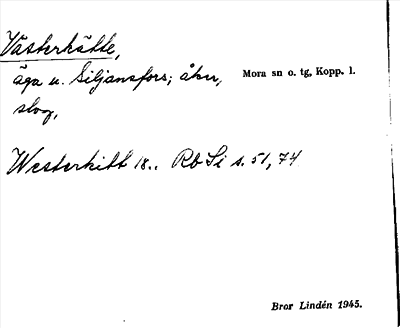 Västerkätte,
äga u. Siljansfors; åker, Mora sn o. tg, Kopp. l.
slog,
Westerkitt 18.. Rb Si s. 51, 74
Bror Lindén 1945.